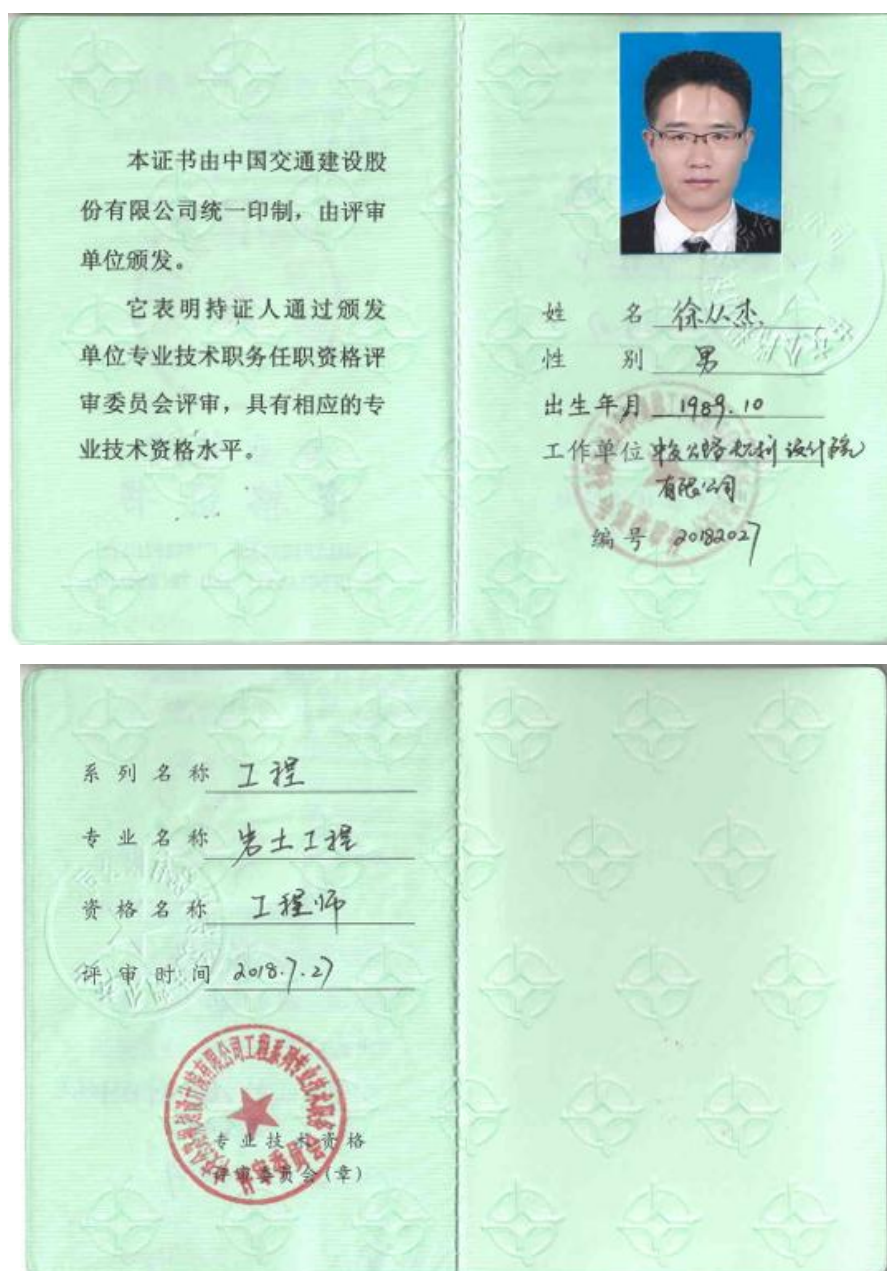 本证书由中国交通建设股
份有限公司统一印制，由评审
单位颁发。
它表明持证人通过颁发
单位专业技术职务任职资格评
审委员会评审，具有相应的专
业技术资格水平。
姓 名 徐从杰
性 别 男
出生年月 1989.10
工作单位 中交公路规划设计院
有限公司
编号 20182027
系列名称 工程
专业名称 岩土工程
资格名称 工程师
评审时间 2018.7.27
专业技术资格
评审委员会(章)